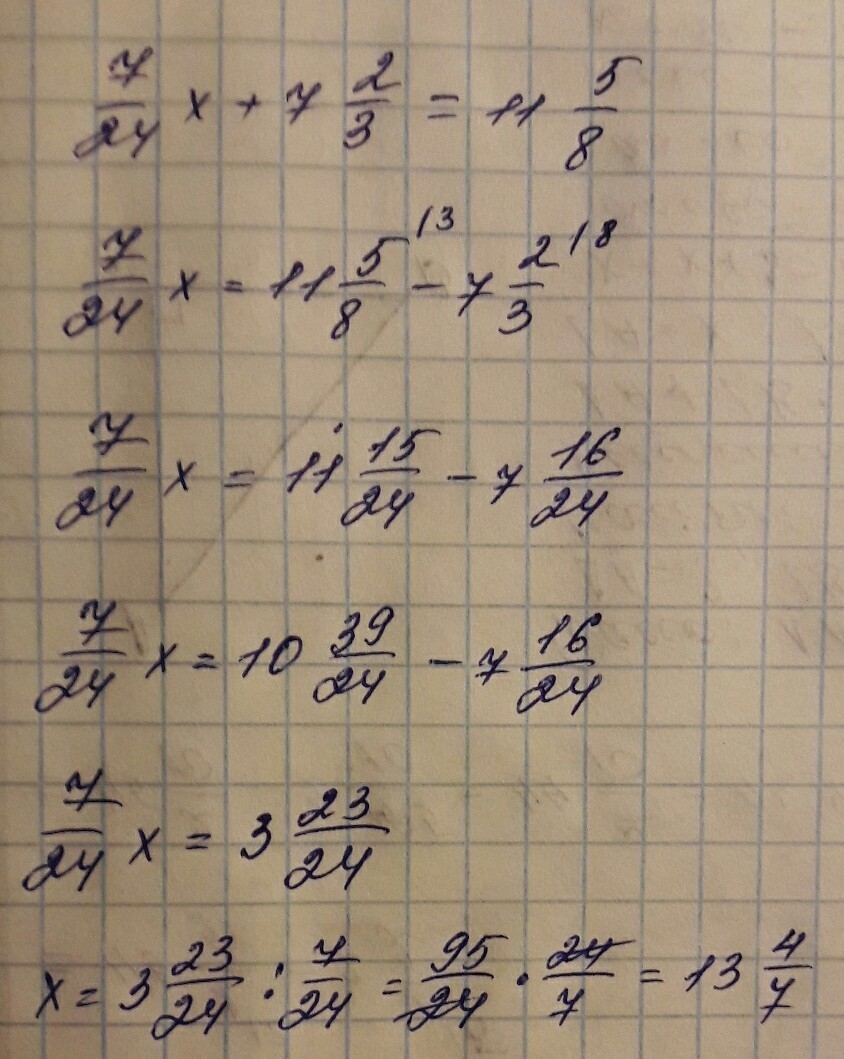 7/24 x + 7 2/3 = 11 5/8
7/24 x = 11 5/8 |3 - 7 2/3 |8
7/24 x = 11 15/24 - 7 16/24
7/24 x = 10 39/24 - 7 16/24
7/24 x = 3 23/24
x = 3 23/24 : 7/24 = 95/24 · 24/7 = 13 4/7